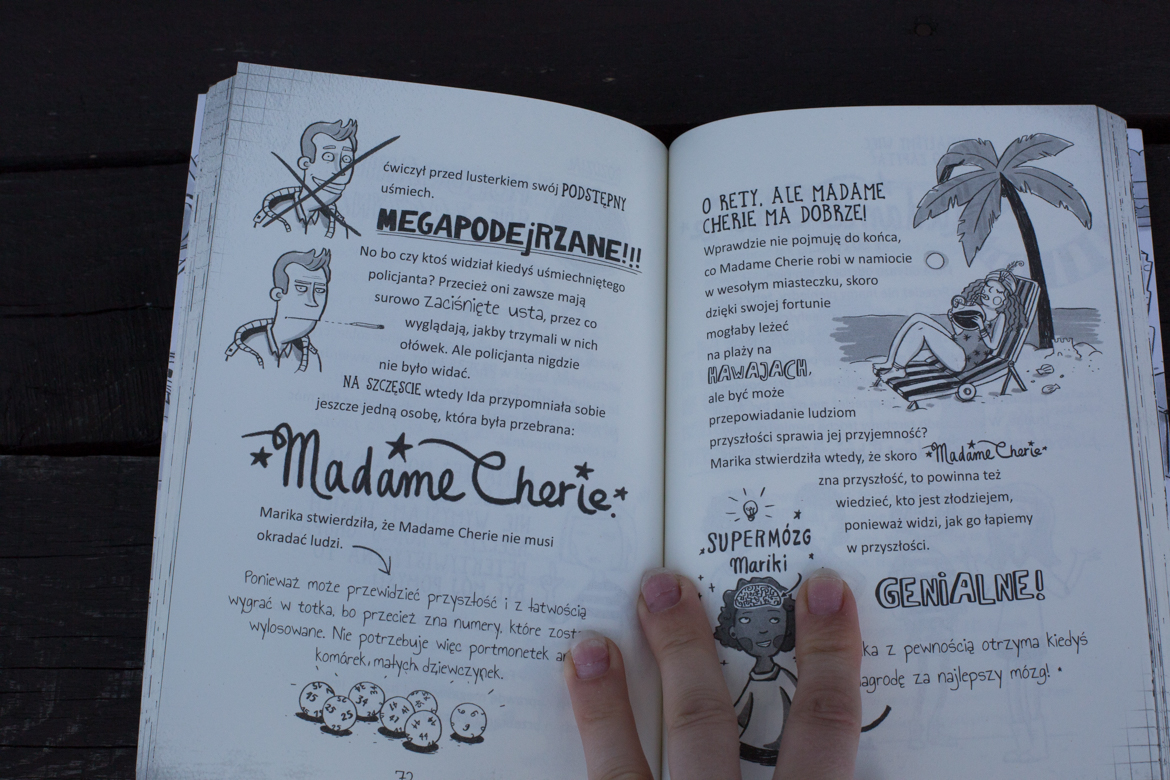 ćwiczył przed lusterkiem swój PODSTĘPNY
uśmiech.
MEGAPODEjRZANE!!!
No bo czy ktoś widział kiedyś uśmiechniętego
policjanta? Przecież oni zawsze mają
surowo zaciśnięte usta, przez co
wyglądają, jakby trzymali w nich
ołówek. Ale policjanta nigdzie
nie było widać.
NA SZCZĘŚCIE wtedy Ida przypomniała sobie
jeszcze jedną osobę, która była przebrana:
Madame Cherie.
Marika stwierdziła, że Madame Cherie nie musi
okradać ludzi.
Ponieważ może przewidzieć przyszłość i z łatwością
wygrać w totka, bo przecież zna numery, które
wylosowane. Nie potrzebuje więc portmonetek
komórek małych dziewczynek.
72
O RETY, ALE MADAME
CHERIE MA DOBRZE!
Wprawdzie nie pojmuję do końca,
co Madame Cherie robi w namiocie
w wesołym miasteczku, skoro
dzięki swojej fortunie
mogłaby leżeć
na plaży na
HAWAJACH,
ale być może
przepowiadanie ludziom
przyszłości sprawia jej przyjemność?
Marika stwierdziła wtedy, że skoro Madame Cherie
zna przyszłość, to powinna też
wiedzieć, kto jest złodziejem,
ponieważ widzi, jak go łapiemy
w przyszłości.
SUPERMÓZG
Mariki
GENiALNE!
z pewnością otrzyma kiedyś
za najlepszy mózg!